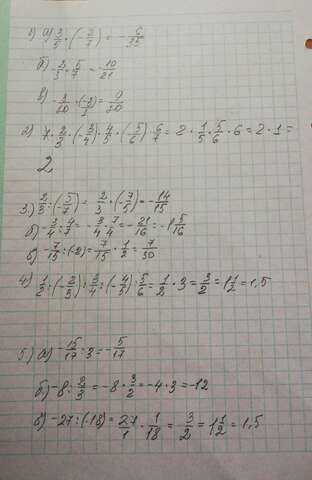 1) а) 2/5 · (-3/7) = -6/35
б) -2/3 · 5/7 = -10/21
в) -3/20 · (-3/1) = 9/20
2) 7 · 2/3 · (-3/4) · 4/5 · (-5/6) · 6/7 = 2 · 1/5 · 5/6 · 6 = 2 · 1 =
2
3) 2/3 : (-5/7) = 2/3 · (-7/5) = -14/15
б) -3/4 : 4/7 = -3/4 · 7/4 = -21/16 = -1 5/16
в) -7/15 : (-2) = 7/15 · 1/2 = 7/30
4) 1/2 : (-2/3) : 3/4 : (-4/5) : 5/6 = 1/2 · 3 = 3/2 = 1 1/2 = 1,5
5) а) -15/17 : 3 = -5/17
б) -8 : 2/3 = -8 · 3/2 = -4 · 3 = -12
в) -27 : (-18) = 27/1 · 1/18 = 3/2 = 1 1/2 = 1,5